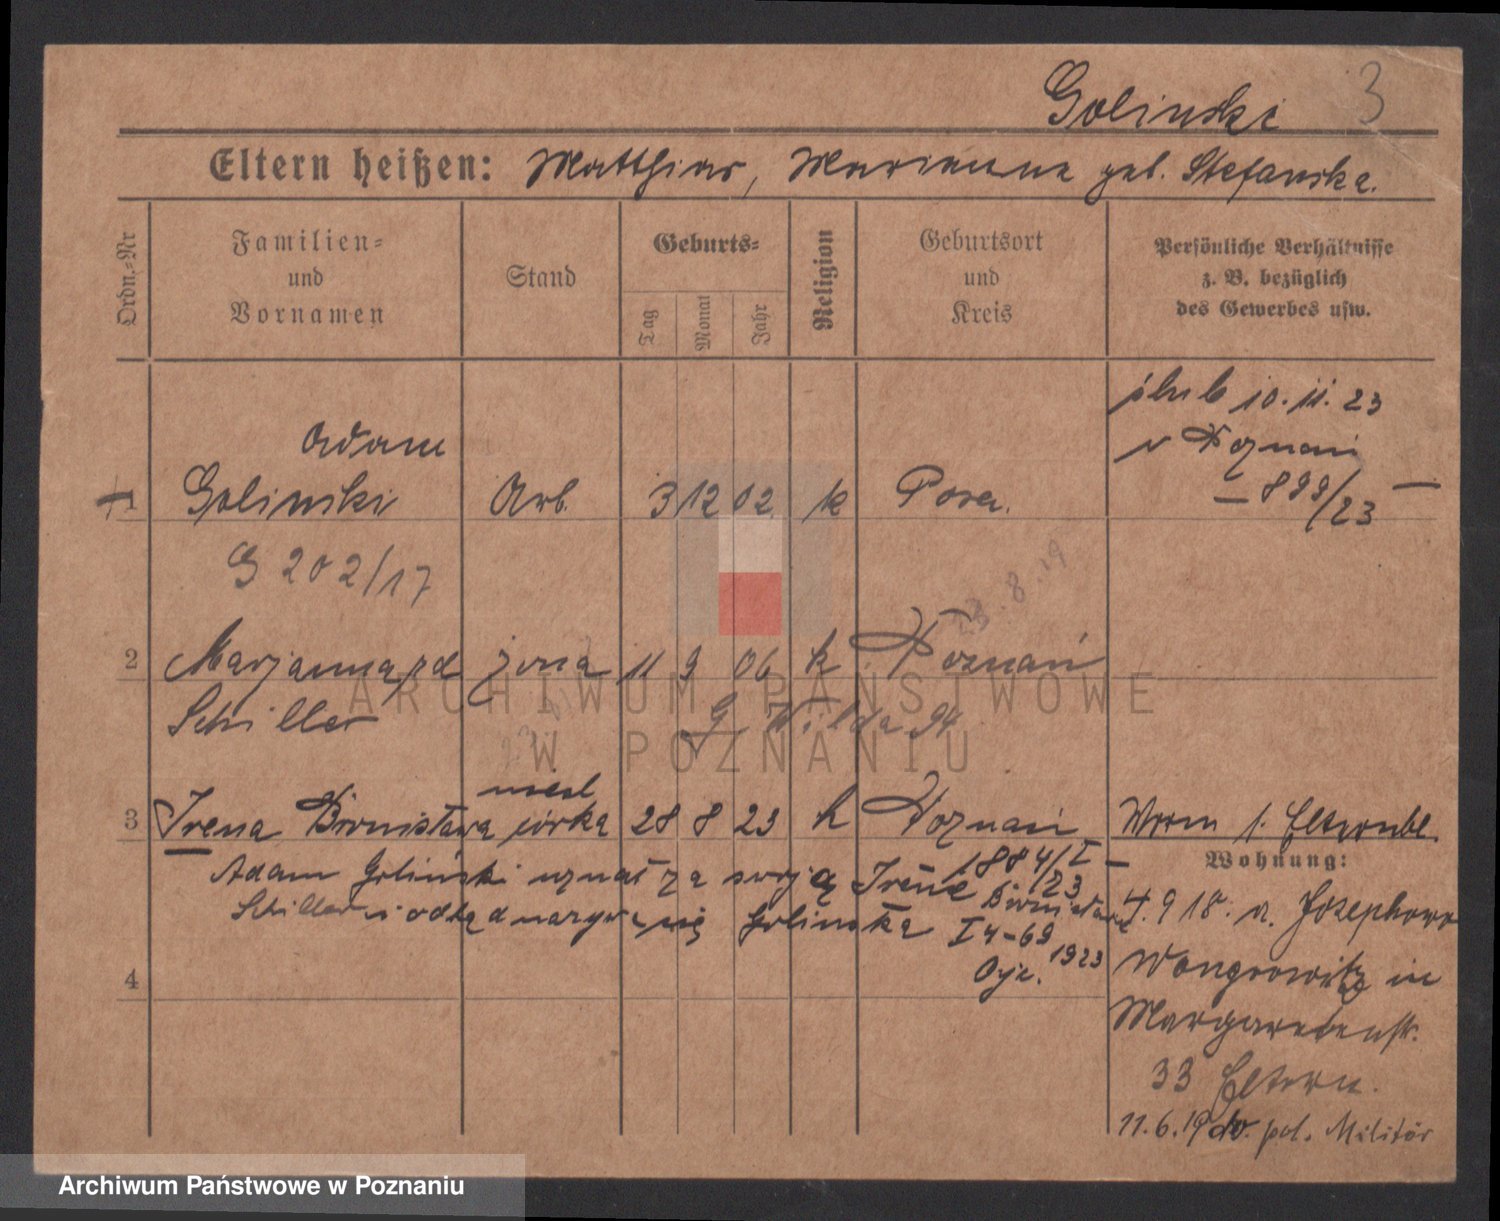 Golinski 3
Eltern heißen: Matthias, Marianna geb. Stefanska.
Ordn.-Nr
Familien-
und
Vornamen
Stand
Geburts-
Tag
Monat
Jahr
Religion
Geburtsort
und
Kreis
Persönliche Verhältnisse
z. B. bezüglich
des Gewerbes usw.
ślub 10.11.23
w Poznań
— 899/23 —
Adam
1 Golinski Arb. 3 12 02 k Posen.
G 202/17
23.8.19
2 Marjanna zd żona 11 9 06 k Poznań
Schiller G. Wilda 94
niesl
3 Irena Bronisława córka 28 8 23 k Poznań
1884/I — 23
Adam Goliński uznał za swoją Irenę Bronisławę
Schiller i odtąd nazywa się Golinska I 4-69
1923
4
Worm s. Elternbl.
Wohnung:
4.9 18. a. Josephowo
Wongrowitz in
Margaretenstr.
33 Eltern.
11.6.19 pol. Militär
ARCHIWUM PAŃSTWOWE
W POZNANIU
Archiwum Państwowe w Poznaniu